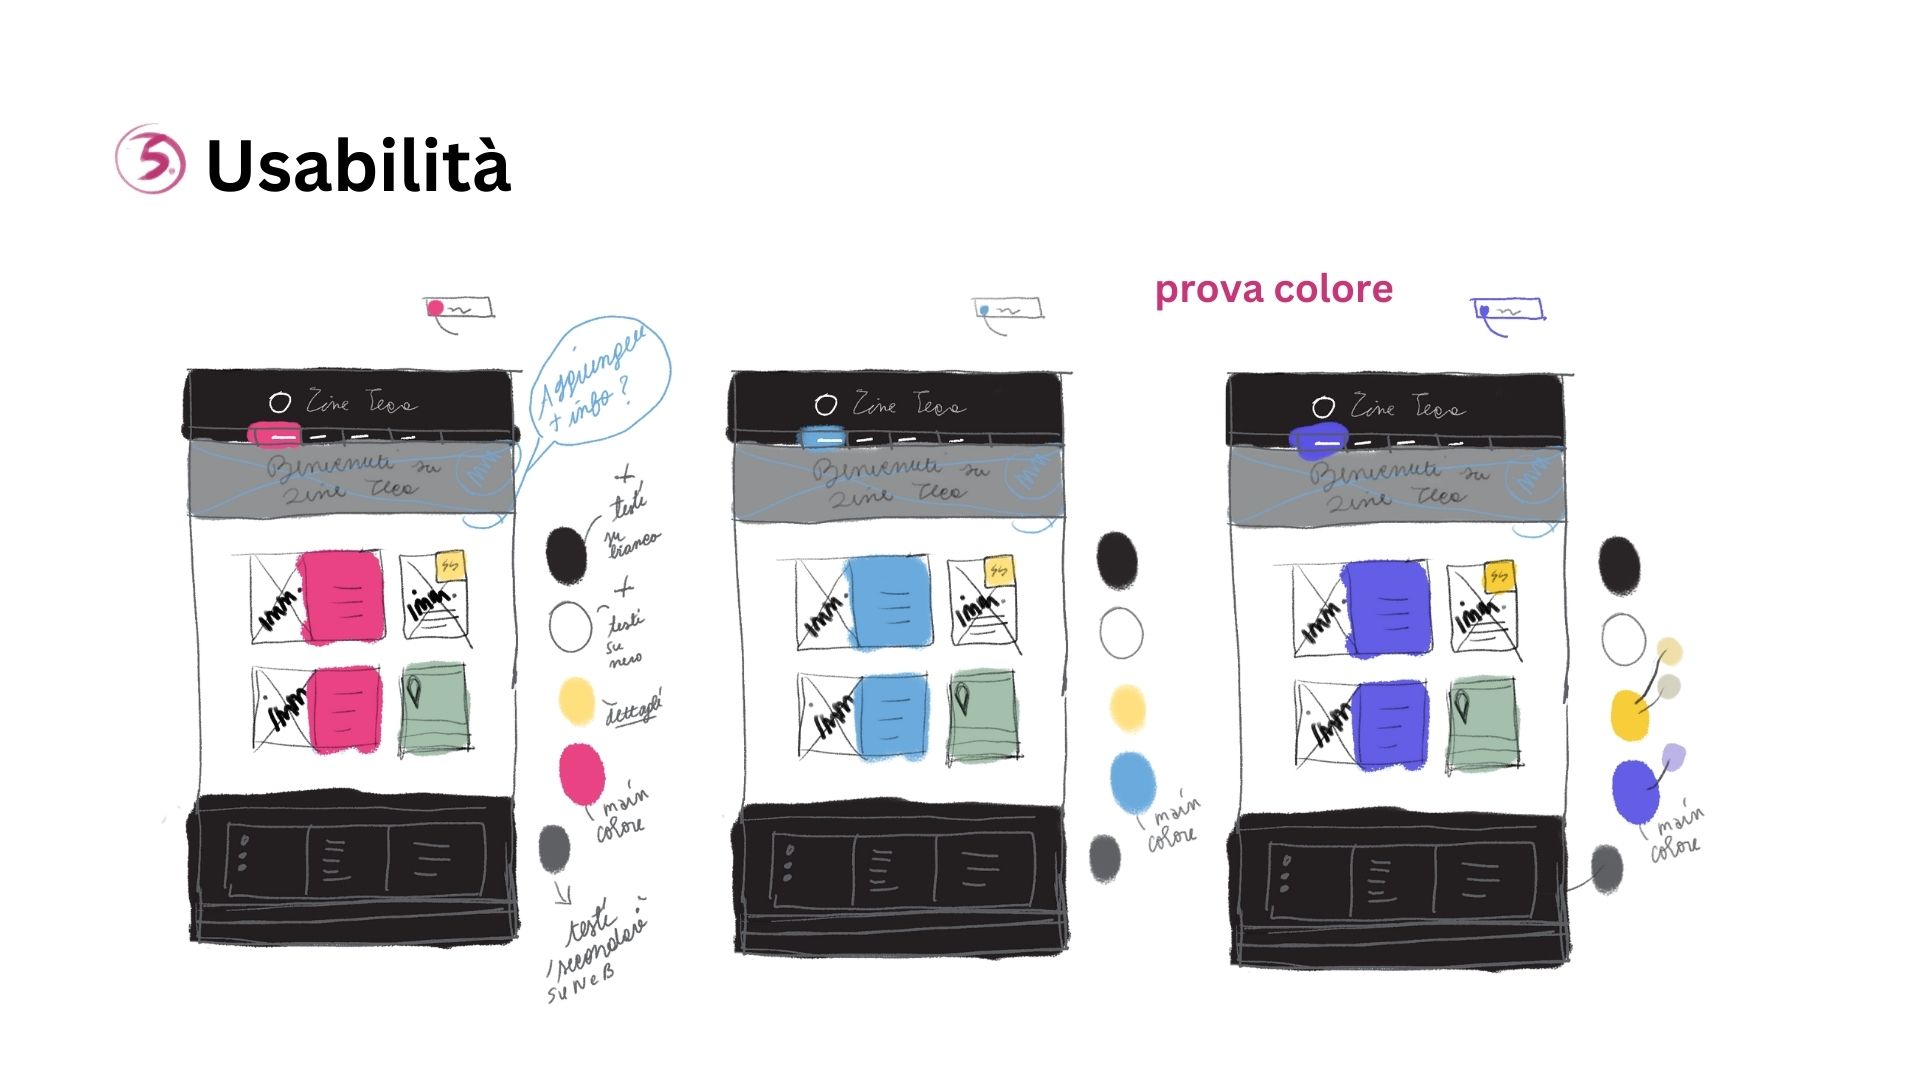 3. Usabilità
prova colore
Zine Teca
Benvenuti su
Zine Teca
imm
Aggiungere
+ info?
Imm.
Imm.
Imm
+
testi
su
bianco
+
testi
su
nero
dettagli
main
colore
testi
secondari
su N e B
Zine Teca
Benvenuti su
Zine Teca
imm
Imm.
Imm.
Imm
main
colore
Zine Teca
Benvenuti su
Zine Teca
imm
Imm.
Imm.
Imm
main
colore